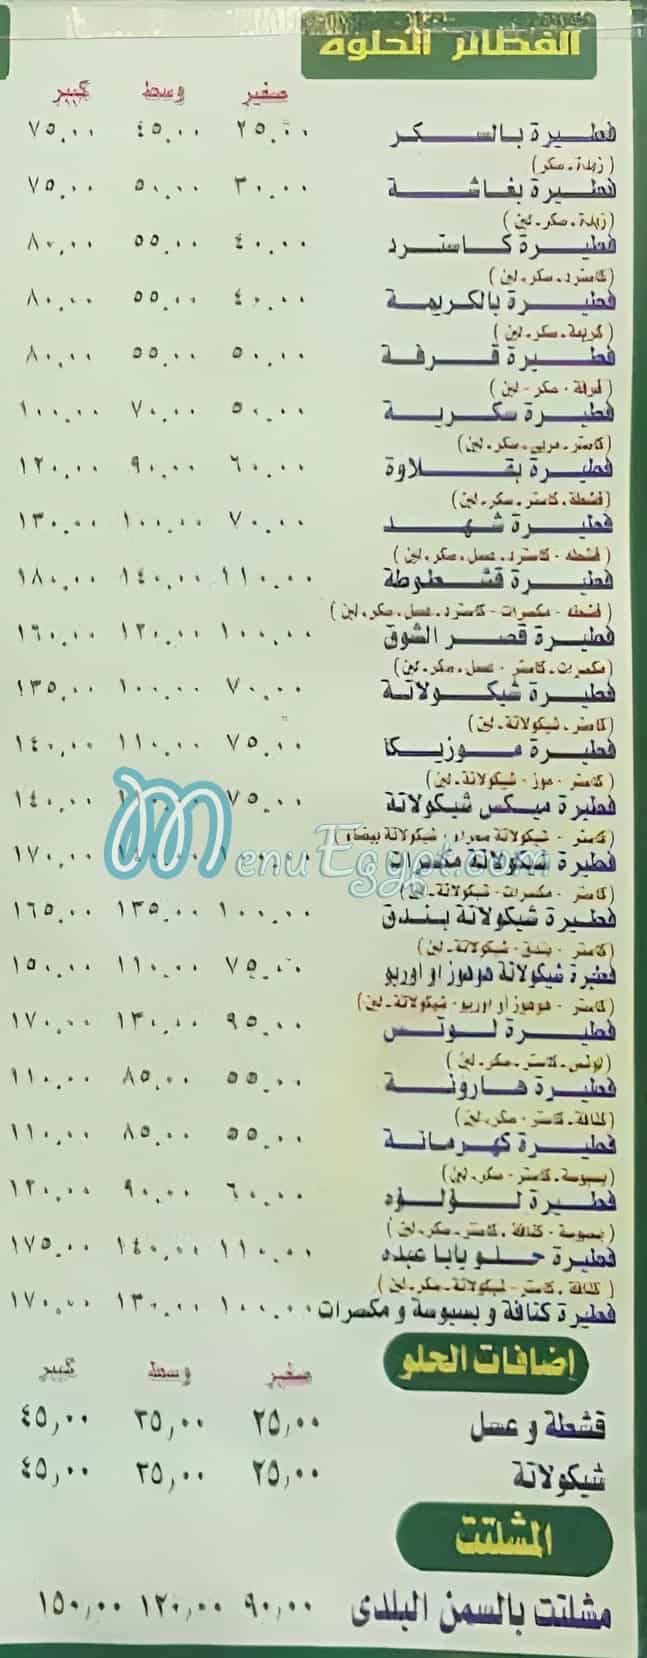 الفطائر الحلوة
صغير وسط كبير
فطيرة بالسكر ٢٥,٠٠ ٤٥,٠٠ ٧٥,٠٠
(زبدة. سكر)
فطيرة بغاشة ٣٠,٠٠ ٥٠,٠٠ ٧٥,٠٠
(زبدة. سكر. لبن)
فطيرة كاسترد ٤٠,٠٠ ٥٥,٠٠ ٨٠,٠٠
(كاسترد. سكر. لبن)
فطيرة بالكريمة ٤٠,٠٠ ٥٥,٠٠ ٨٠,٠٠
(كريمة. سكر. لبن)
فطيرة قرفة ٥٠,٠٠ ٥٥,٠٠ ٨٠,٠٠
(قرفة - سكر - لبن)
فطيرة سكرية ٥٠,٠٠ ٧٠,٠٠ ١٠٠,٠٠
(كاستر. مربى. سكر. لبن)
فطيرة بقلاوة ٦٠,٠٠ ٩٠,٠٠ ١٢٠,٠٠
(قشطة. كاستر. سكر. لبن)
فطيرة شهد ٧٠,٠٠ ١٠٠,٠٠ ١٣٠,٠٠
(قشطه - كاسترد. عسل. سكر. لبن)
فطيرة قشطوطة ١١٠,٠٠ ١٤٠,٠٠ ١٨٠,٠٠
(قشطه - مكسرات - كاسترد. عسل. سكر. لبن)
فطيرة قصر الشوق ١٠٠,٠٠ ١٢٠,٠٠ ١٦٠,٠٠
(مكسرات. كاستر - عسل. سكر. لبن)
فطيرة شيكولاتة ٧٠,٠٠ ١٠٠,٠٠ ١٣٥,٠٠
(كاستر. شيكولاتة. لبن)
فطيرة موزيكا ٧٥,٠٠ ١١٠,٠٠ ١٤٠,٠٠
(كاستر - موز - شيكولاتة. لبن)
فطيرة ميكس شيكولاتة ٧٥,٠٠ ١١٠,٠٠ ١٤٠,٠٠
(كاستر - شيكولاتة سمراء - شيكولاتة بيضاء)
فطيرة شيكولاتة مكسرات ١٠٠,٠٠ ١٤٠,٠٠ ١٧٠,٠٠
MenuEgypt.com
(كاستر - مكسرات - شيكولاتة. لبن)
فطيرة شيكولاتة بندق ١٠٠,٠٠ ١٣٥,٠٠ ١٦٥,٠٠
(كاستر - بندق - شيكولاتة. لبن)
فطيرة شيكولاتة هوهوز او اوريو ٧٥,٠٠ ١١٠,٠٠ ١٥٠,٠٠
(كاستر - هوهوز أو اوريو - شيكولاتة. لبن)
فطيرة لوتس ٩٥,٠٠ ١٣٠,٠٠ ١٧٠,٠٠
(لوتس. كاستر. سكر. لبن)
فطيرة هارونة ٥٥,٠٠ ٨٥,٠٠ ١١٠,٠٠
(كنافة. كاستر - سكر. لبن)
فطيرة كهرمانة ٥٥,٠٠ ٨٥,٠٠ ١١٠,٠٠
(بسبوسة. كاستر - سكر. لبن)
فطيرة لؤلؤه ٦٠,٠٠ ٩٠,٠٠ ١٢٠,٠٠
(بسبوسة - كنافة. كاستر. سكر. لبن)
فطيرة حلو بابا عبده ١١٠,٠٠ ١٤٠,٠٠ ١٧٥,٠٠
(كنافة. كاستر - شيكولاتة. سكر. لبن)
فطيرة كنافة و بسبوسة و مكسرات ١٠٠,٠٠ ١٣٠,٠٠ ١٧٠,٠٠
إضافات الحلو
صغير وسط كبير
قشطة و عسل ٢٥,٠٠ ٣٥,٠٠ ٤٥,٠٠
شيكولاتة ٢٥,٠٠ ٣٥,٠٠ ٤٥,٠٠
المشلتت
مشلتت بالسمن البلدى ٩٠,٠٠ ١٢٠,٠٠ ١٥٠,٠٠